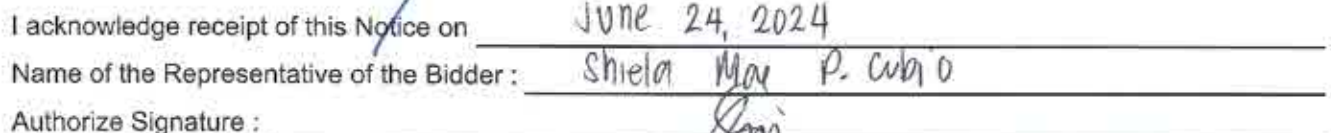 I acknowledge receipt of this Notice on June 24, 2024
Name of the Representative of the Bidder : Shiela Mae P. Cubio
Authorize Signature :